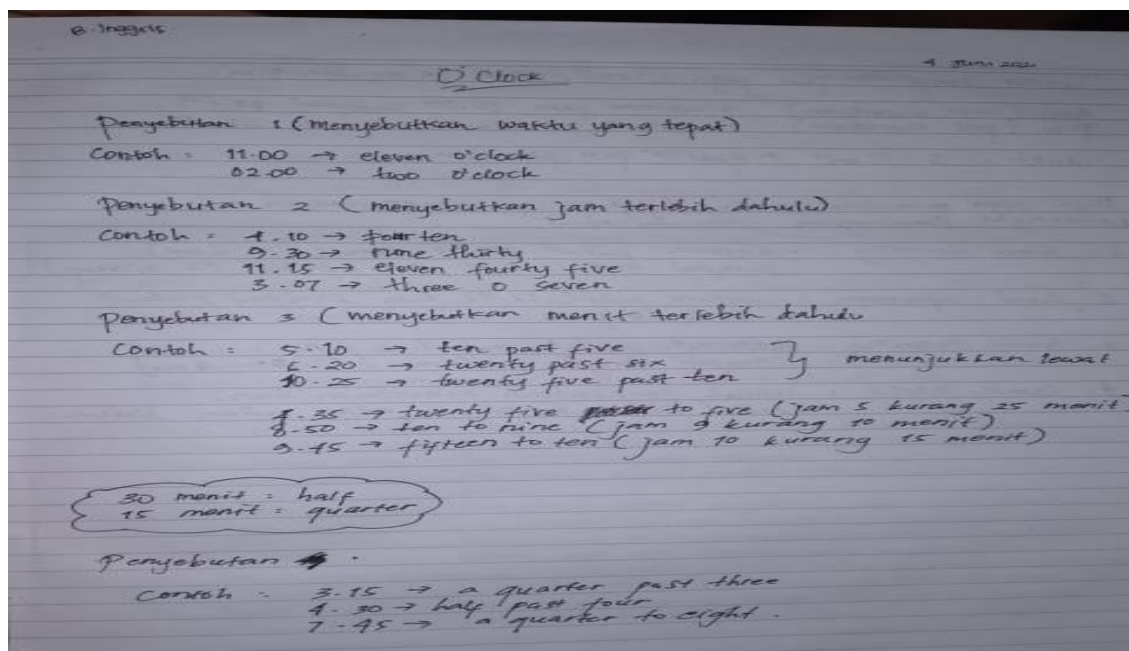 B. Inggris
4 Juni
O'Clock
Penyebutan 1 (menyebutkan waktu yang tepat)
Contoh : 11.00 → eleven o'clock
02.00 → two o'clock
Penyebutan 2 (menyebutkan jam terlebih dahulu)
Contoh : 4.10 → four ten
9.30 → nine thirty
11.45 → eleven fourty five
3.07 → three o seven
Penyebutan 3 (menyebutkan menit terlebih dahulu
Contoh : 5.10 → ten past five
6.20 → twenty past six } menunjukkan lewat
10.25 → twenty five past ten
4.35 → twenty five to five (jam 5 kurang 25 menit)
8.50 → ten to nine (jam 9 kurang 10 menit)
9.45 → fifteen to ten (jam 10 kurang 15 menit)
30 menit : half
15 menit : quarter
Penyebutan 4 .
Contoh : 3.15 → a quarter past three
4.30 → half past four
7.45 → a quarter to eight.